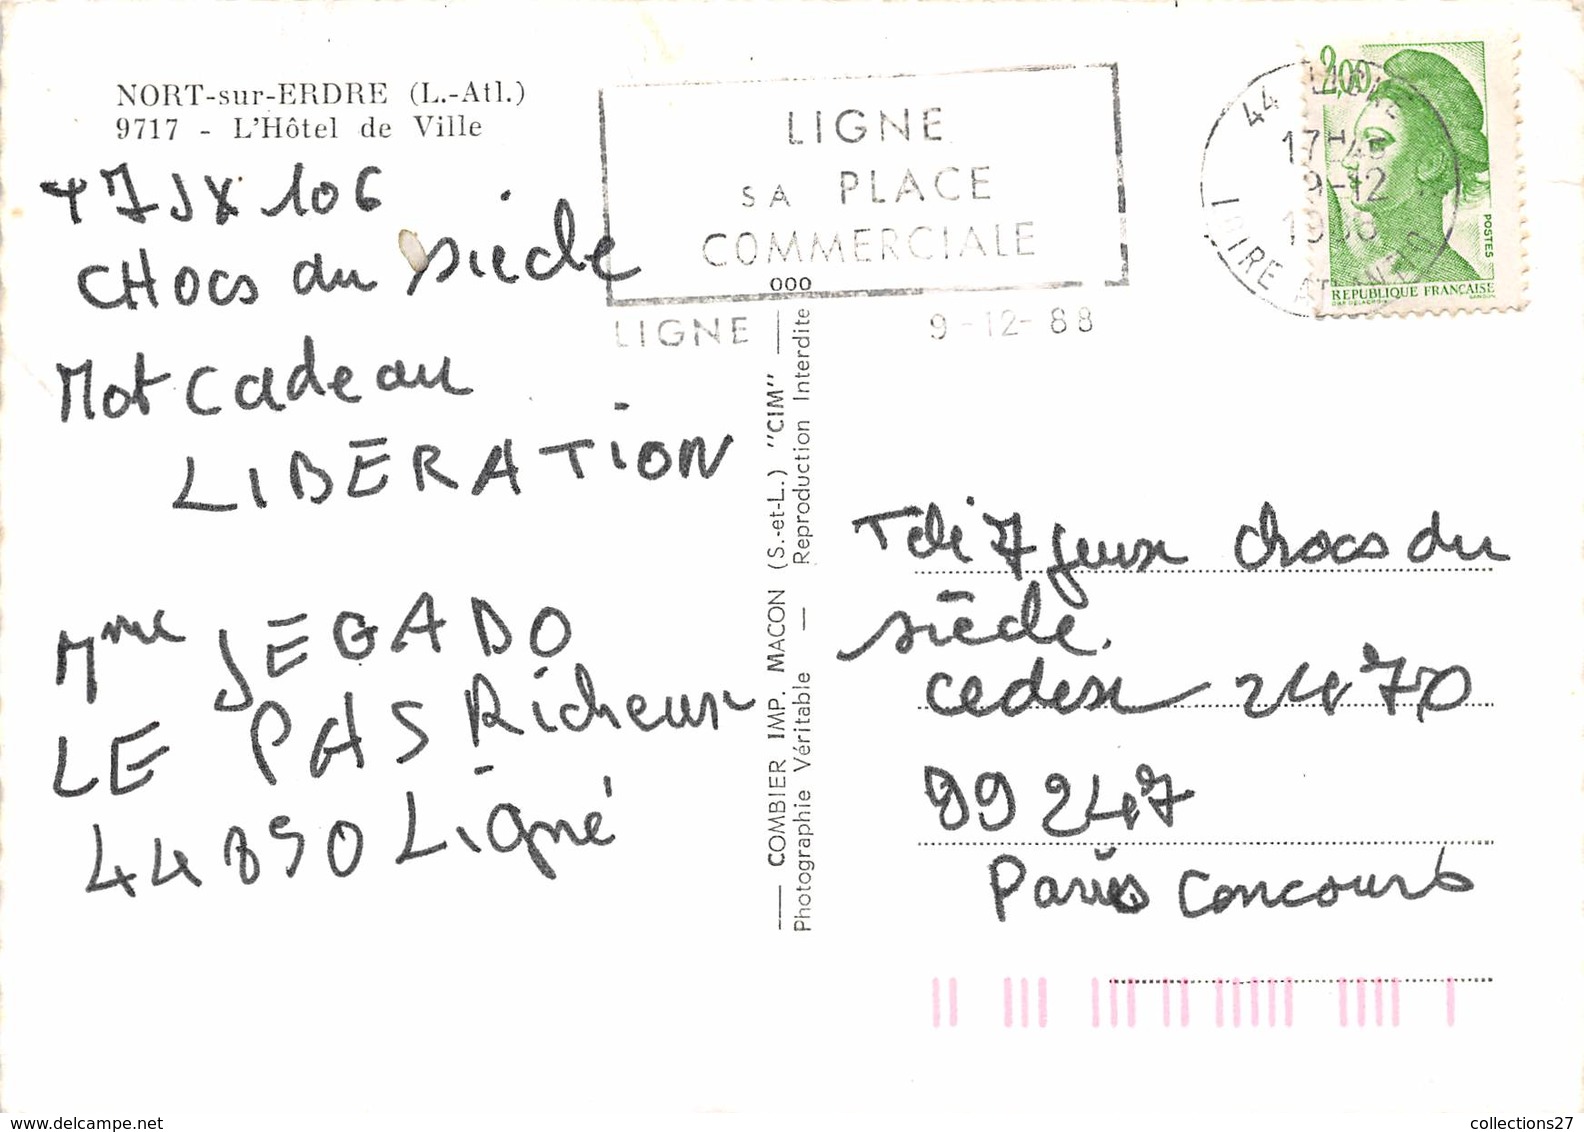 NORT-sur-ERDRE (L.-Atl.)
9717 - L'Hôtel de Ville
T7JX 106
CHOCS du siècle
Mot cadeau
LIBERATION
Mme JEGADO
LE PAS Richeux
44850 Ligné
LIGNE
SA PLACE
COMMERCIALE
000
LIGNE 9-12-88
44 LIGNE
17H45
9-12
1988
LOIRE ATLANTIQUE
2,00
POSTES
REPUBLIQUE FRANÇAISE
COMBIER IMP. MACON (S.-et-L.) "CIM"
Photographie Véritable — Reproduction Interdite
Télé 7 jeux chocs du
siècle.
cedex 2470
99247
Paris Concours
collections27